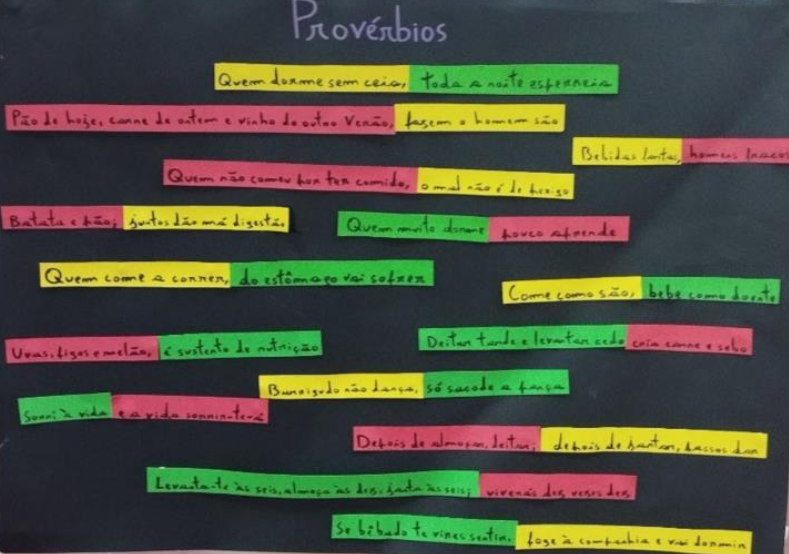 Provérbios
Quem dorme sem ceia, toda a noite esperneia
Pão de hoje, carne de ontem e vinho do outro Verão, fazem o homem são
Bebidas fortes, homens fracos
Quem não comeu por ter comido, o mal não é de perigo
Batata e pão, juntos dão má digestão
Quem muito dorme pouco aprende
Quem come a correr, do estômago vai sofrer
Come como são, bebe como doente
Uvas, figos e melão, é sustento de nutrição
Deitar tarde e levantar cedo cria carne e sebo
Barrigudo não dança, só sacode a pança
Sorri à vida e a vida sorrirá
Depois de almoçar, deitar; depois de jantar, passos dar
Levanta-te às seis, almoça às dez, janta às seis, viverás dez vezes dez
Se bêbado te vires sentir, foge à companhia e vai dormir